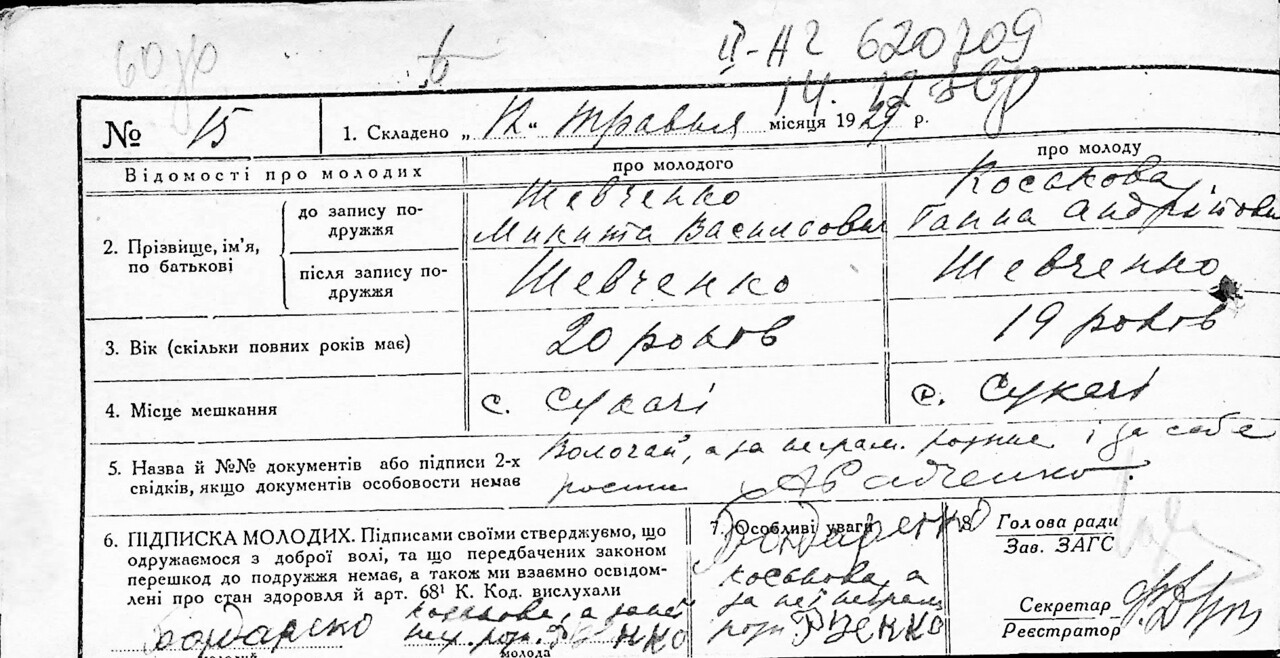 ІІ-НГ 620709
№ 15
1. Складено „12“ травня місяця 1929 р.
Відомості про молодих
про молодого
про молоду
2. Прізвище, ім’я, по батькові
до запису подружжя
Шевченко
Микита Васильович
Косакова
Ганна Андріївна
після запису подружжя
Шевченко
Шевченко
3. Вік (скільки повних років має)
20 років
19 років
4. Місце мешкання
с. Сукачі
с. Сукачі
5. Назва й №№ документів або підписи 2-х
свідків, якщо документів особовости немає
і за себе
6. ПІДПИСКА МОЛОДИХ. Підписами своїми стверджуємо, що
одружаємося з доброї волі, та що передбачених законом
перешкод до подружжя немає, а також ми взаємно освідом-
лені про стан здоровля й арт. 68¹ К. Код. вислухали
Бондаренко
молодий
Косакова, а за неї
молода
7. Особливі уваги
Бондаренко
Косакова, а
за неї неграм.
8. Голова ради
Зав. ЗАГС
Секретар
Реєстратор